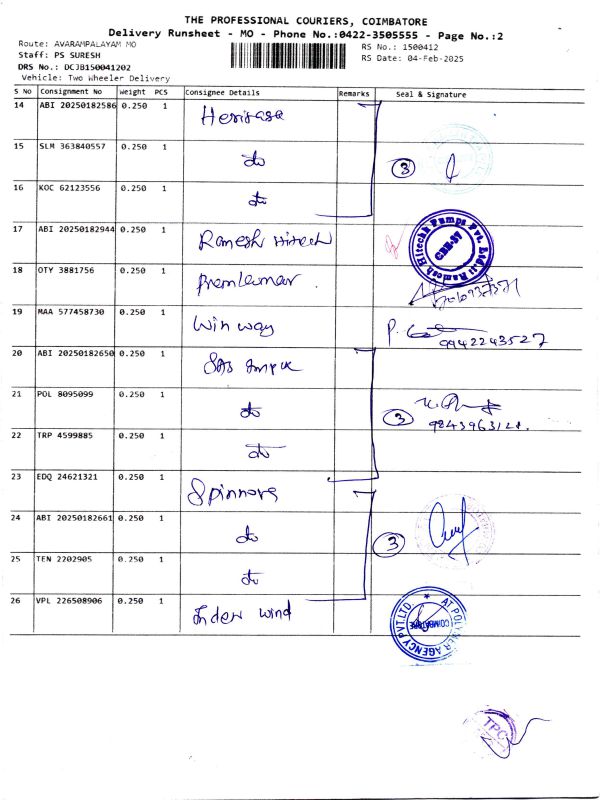 THE PROFESSIONAL COURIERS, COIMBATORE
Delivery Runsheet - MO - Phone No.:0422-3505555 - Page No.:2
Route: AVARAMPALAYAM MO
RS No.: 1500412
Staff: PS SURESH
RS Date: 04-Feb-2025
DRS No.: DCJB150041202
Vehicle: Two Wheeler Delivery
S No Consignment No Weight PCS Consignee Details Remarks Seal & Signature
14 ABI 20250182586 0.250 1
15 SLM 363840557 0.250 1 do 3
16 KOC 62123556 0.250 1 do
17 ABI 20250182944 0.250 1 Ramesh Hitech
Ramesh Hitechh Pumps Pvt. Ltd. CBE-37
18 OTY 3881756 0.250 1 Premkumar
19 MAA 577458730 0.250 1 Win way P. 9942243527
20 ABI 20250182650 0.250 1
21 POL 8095099 0.250 1 do 3
22 TRP 4599885 0.250 1 do
23 EDQ 24621321 0.250 1 Spinnova
24 ABI 20250182661 0.250 1 do 3
25 TEN 2202905 0.250 1 do
26 VPL 226508906 0.250 1 Inder wind
AGENCY PVT.LTD. COIMBATORE
TPC